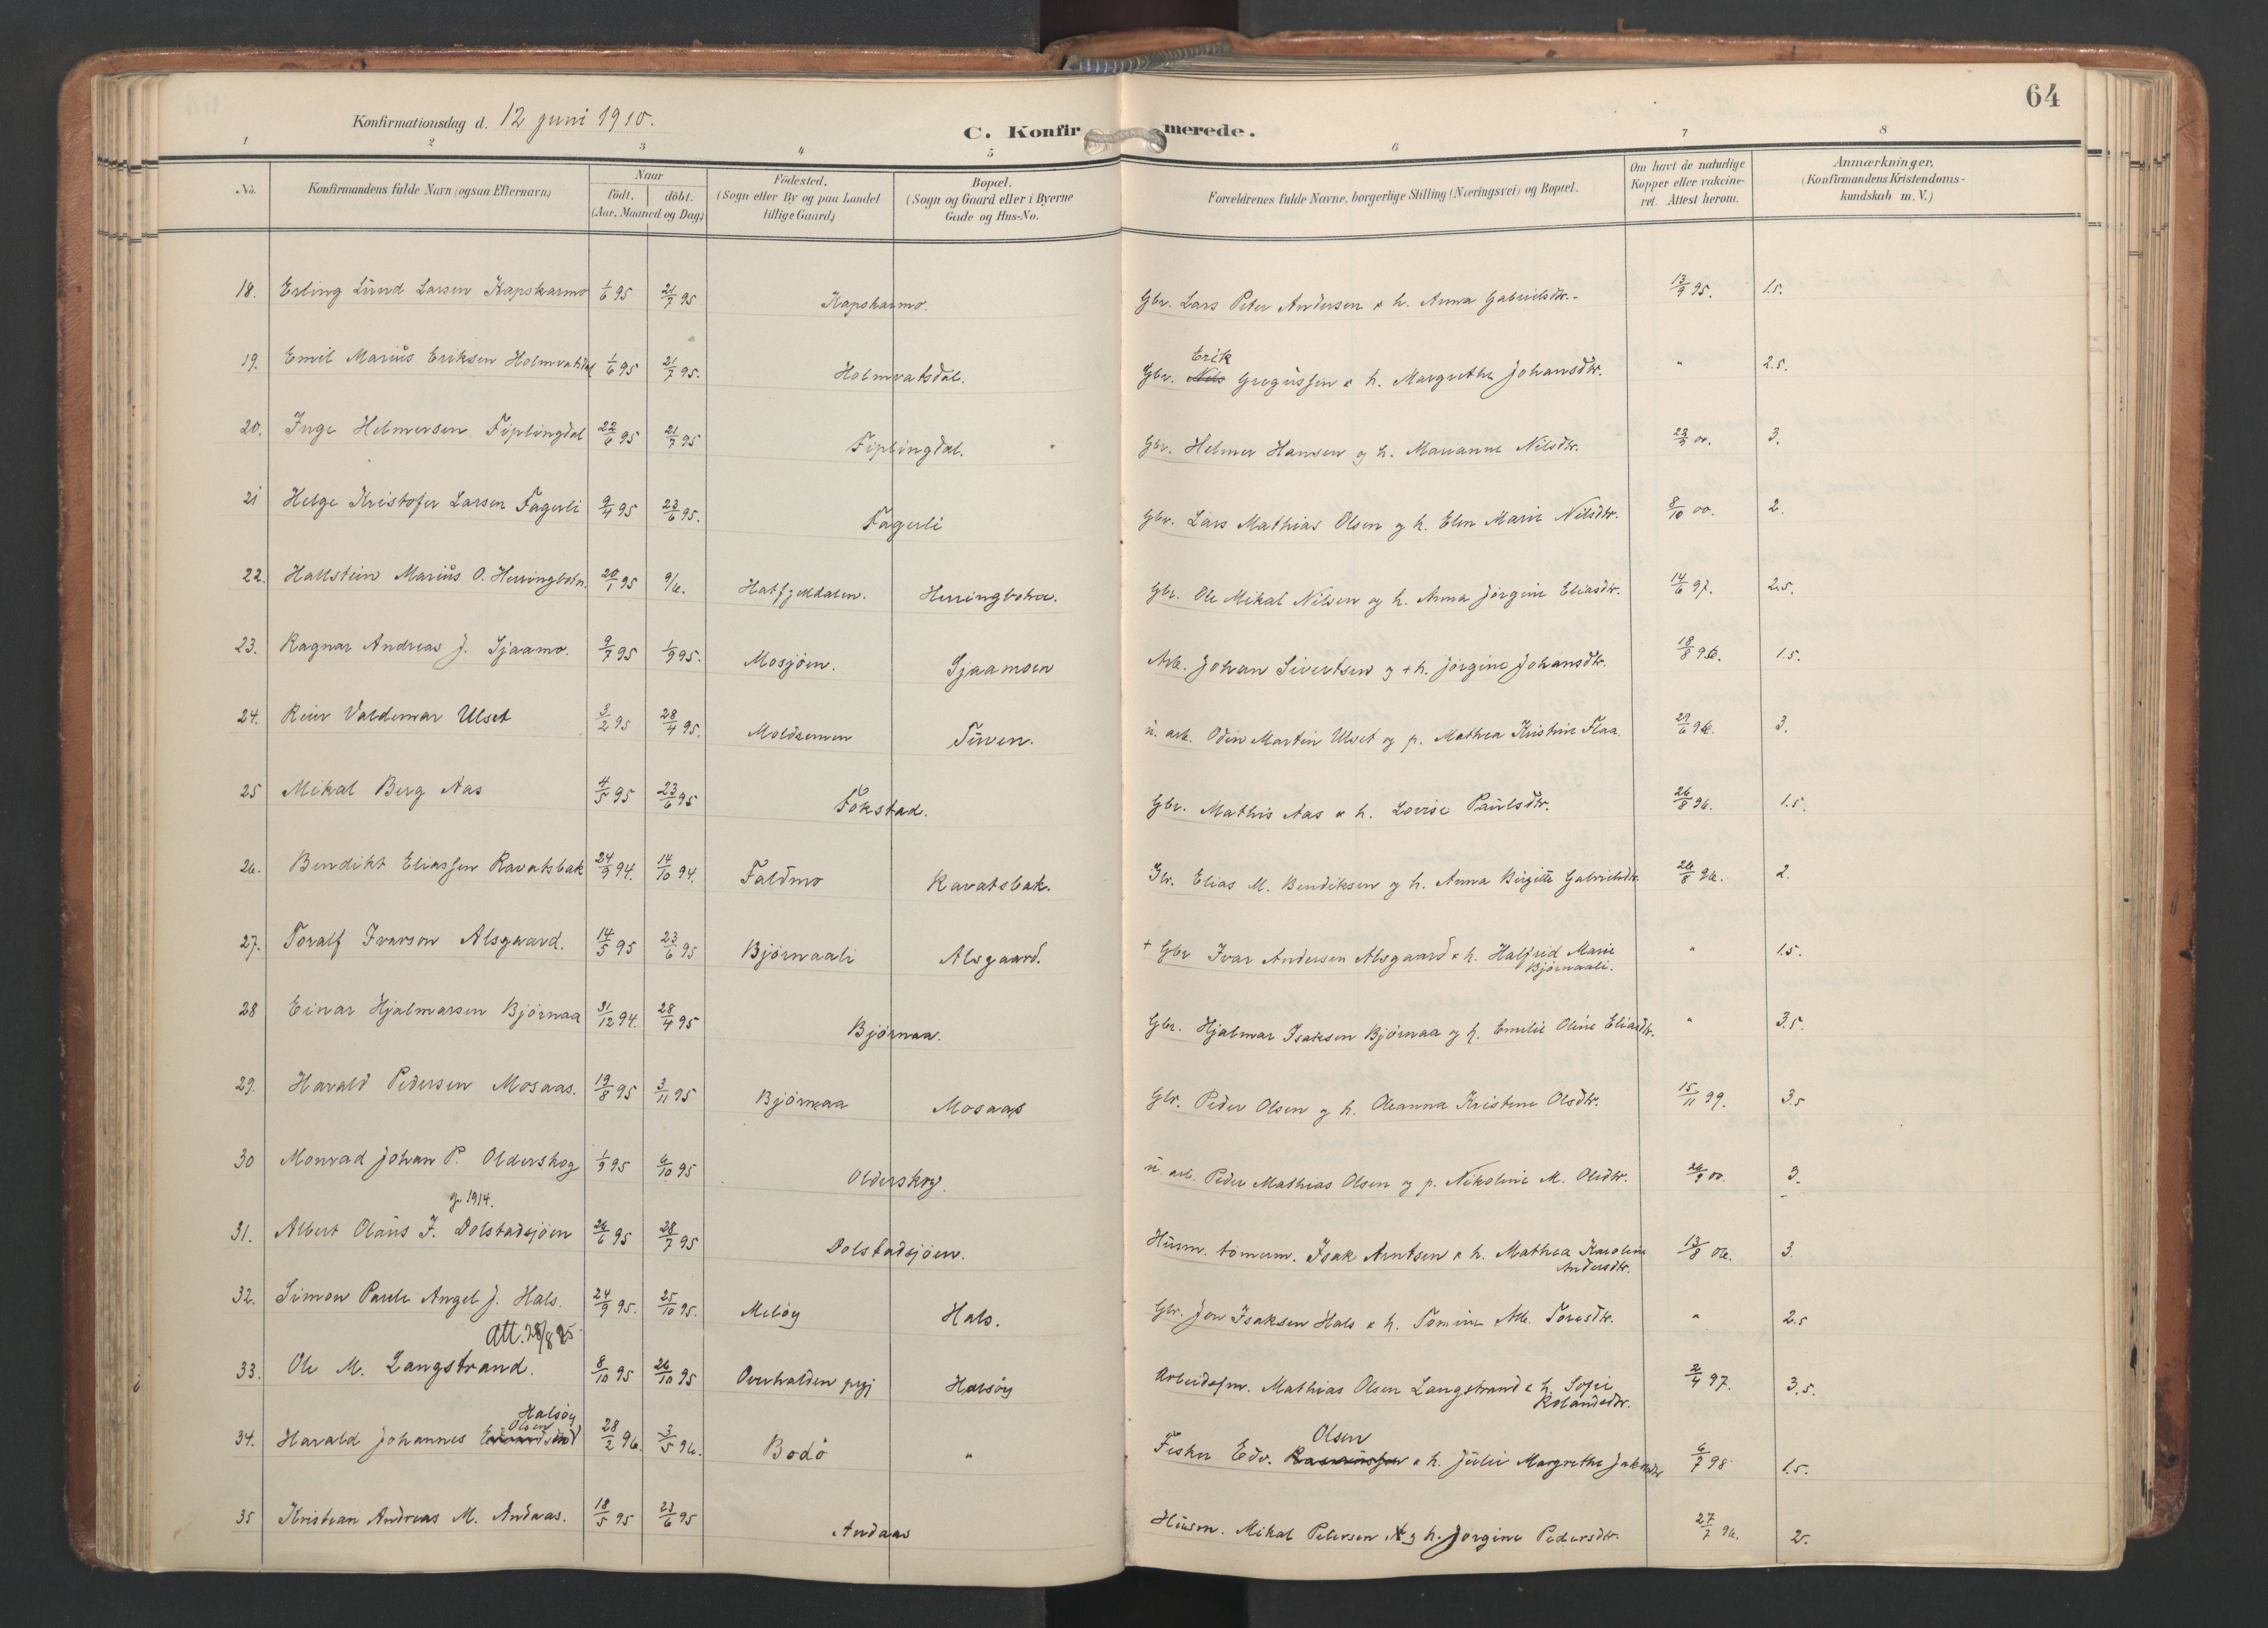 64
Konfirmationsdag d. 12 juni 1910.
C. Konfirmerede.
1 2 3 4 5 6 7 8
No. Konfirmandens fulde Navn (ogsaa Efternavn) Naar födt. döbt. (Aar, Maaned og Dag) Födested. (Sogn eller By og paa Landet tillige Gaard) Bopæl. (Sogn og Gaard eller i Byerne Gade og Hus-No. Forældrenes fulde Navne, borgerlige Stilling (Næringsvei) og Bopæl. Om havt de naturlige Kopper eller vakcineret. Attest herom. Anmærkninger. (Konfirmandens Kristendomskundskab m. V.)
18. Erling Lund Larsen Kapskarmo 1/6 95 21/7 95 Kapskarmo. Gbr. Lars Peter Andersen & h. Anna Gabrielsdtr. 13/9 95. 1.5.
19. Emil Marius Eriksen Holmvatsdal 1/6 95 21/7 95. Holmvatsdal. Gbr. Nils Erik Gregussen & h. Margrethe Johansdtr. " 2.5.
20. Inge Helmersen Fiplingdal 22/6 95 21/7 95 Fiplingdal. Gbr. Helmer Hansen og h. Marianne Nilsdtr. 00. 3.
21 Helge Kristofer Larsen Fagerli 9/4 95 23/6 95. Fagerli Gbr. Lars Mathias Olsen og h. Elen Marie Nilsdtr. 8/10 00. 2.
22. Hallstein Marius O. Herringbotn. 20/1 95 9/6. Hatfjeldalen. Herringbotn. Gbr. Ole Mikal Nilsen og h. Anna Jørgine Eliasdtr. 14/6 97. 2.5.
23. Ragnar Andreas J. Sjaamo. 9/7 95 1/9 95. Mosjöen. Sjaamoen Arb. Johan Sivertsen og + h. Jørgine Johansdtr. 18/8 96. 1.5.
24. Reier Valdemar Ulset 3/2 95 28/4 95. Moldsemen Tuven. u. arb. Odin Martin Ulset og p. Mathea Kristine Flaa. 6 96. 3.
25 Mikal Berg Aas 4/5 95 23/6 95 Fokstad. Gbr. Mathis Aas & h. Lovise Paulsdtr. 26/8 96. 1.5.
26. Bendikt Eliassen Ravatsbak 24/9 94. 14/10 94. Faldmo Ravatsbak. Gbr. Elias M. Bendiksen og h. Anna Birgitte Gabrielsdtr. 26/8 96. 2.
27. Toralf Ivarson Alsgaard. 14/5 95 23/6 95 Bjørnaali Alsgaard. + Gbr Ivar Andersen Alsgaard & h. Halfrid Marie Bjørnaali. " 1.5.
28 Einar Hjalmarsen Bjørnaa 31/12 94. 28/4 95 Bjørnaa. Gbr. Hjalmar Isaksen Bjørnaa og h. Emilie Oline Eliasdtr. " 3.5.
29. Harald Pedersen Mosaas. 19/8 95 3/11 95 Bjørnaa Mosaas Gbr. Peder Olsen og h. Oleanna Kristine Olsdtr. 15/11 99. 3.5
30 Monrad Johan P. Olderskog 1/9 95 6/10 95 Olderskog. u arb. Peder Mathias Olsen og p. Nikoline M. Olsdtr. 26/9 00. 3.
g. 1914.
31. Albert Olaus I. Dolstadsjöen 26/6 95 28/7 95 Dolstadsjöen. Husm. tömerm. Isak Arntsen & h. Mathea Karoline Andersdtr. 13/8 06. 3.
32. Simon Paule Angel J. Hals. 24/9 95. 25/10 95. Meløy Hals. Gbr. Jon Isaksen Hals & h. Tomine Alb. Toresdtr. " 2.5
Att. 28/8 95
33. Ole M. Langstrand. 8/10 95 26/10 95 Overhalden prgj Halsøy Arbeidsfm. Mathias Olsen Langstrand & h. Sofie Rolandsdtr. 2/4 97. 3.5.
34. Harald Johannes Olsen Halsøy 28/2 96. 3/5 96. Bodö " Fisker Edv. Rasmussen Olsen & h. Julie Margrethe Jakobsdtr 6/7 98 1.5.
35 Kristian Andreas M. Andaas. 18/5 95 23/6 95 Andaas Husm. Mikal Petersen A og h. Jørgine Pedersdtr. 27/7 96. 2.